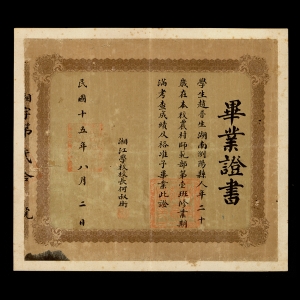 畢業證書
學生趙?生湖南瀏陽縣人年二十
歲在本校農村師範部第壹班修業期
滿考查成績及格准予畢業此證
湘江學校校長何叔衡
民國十五年八月二日